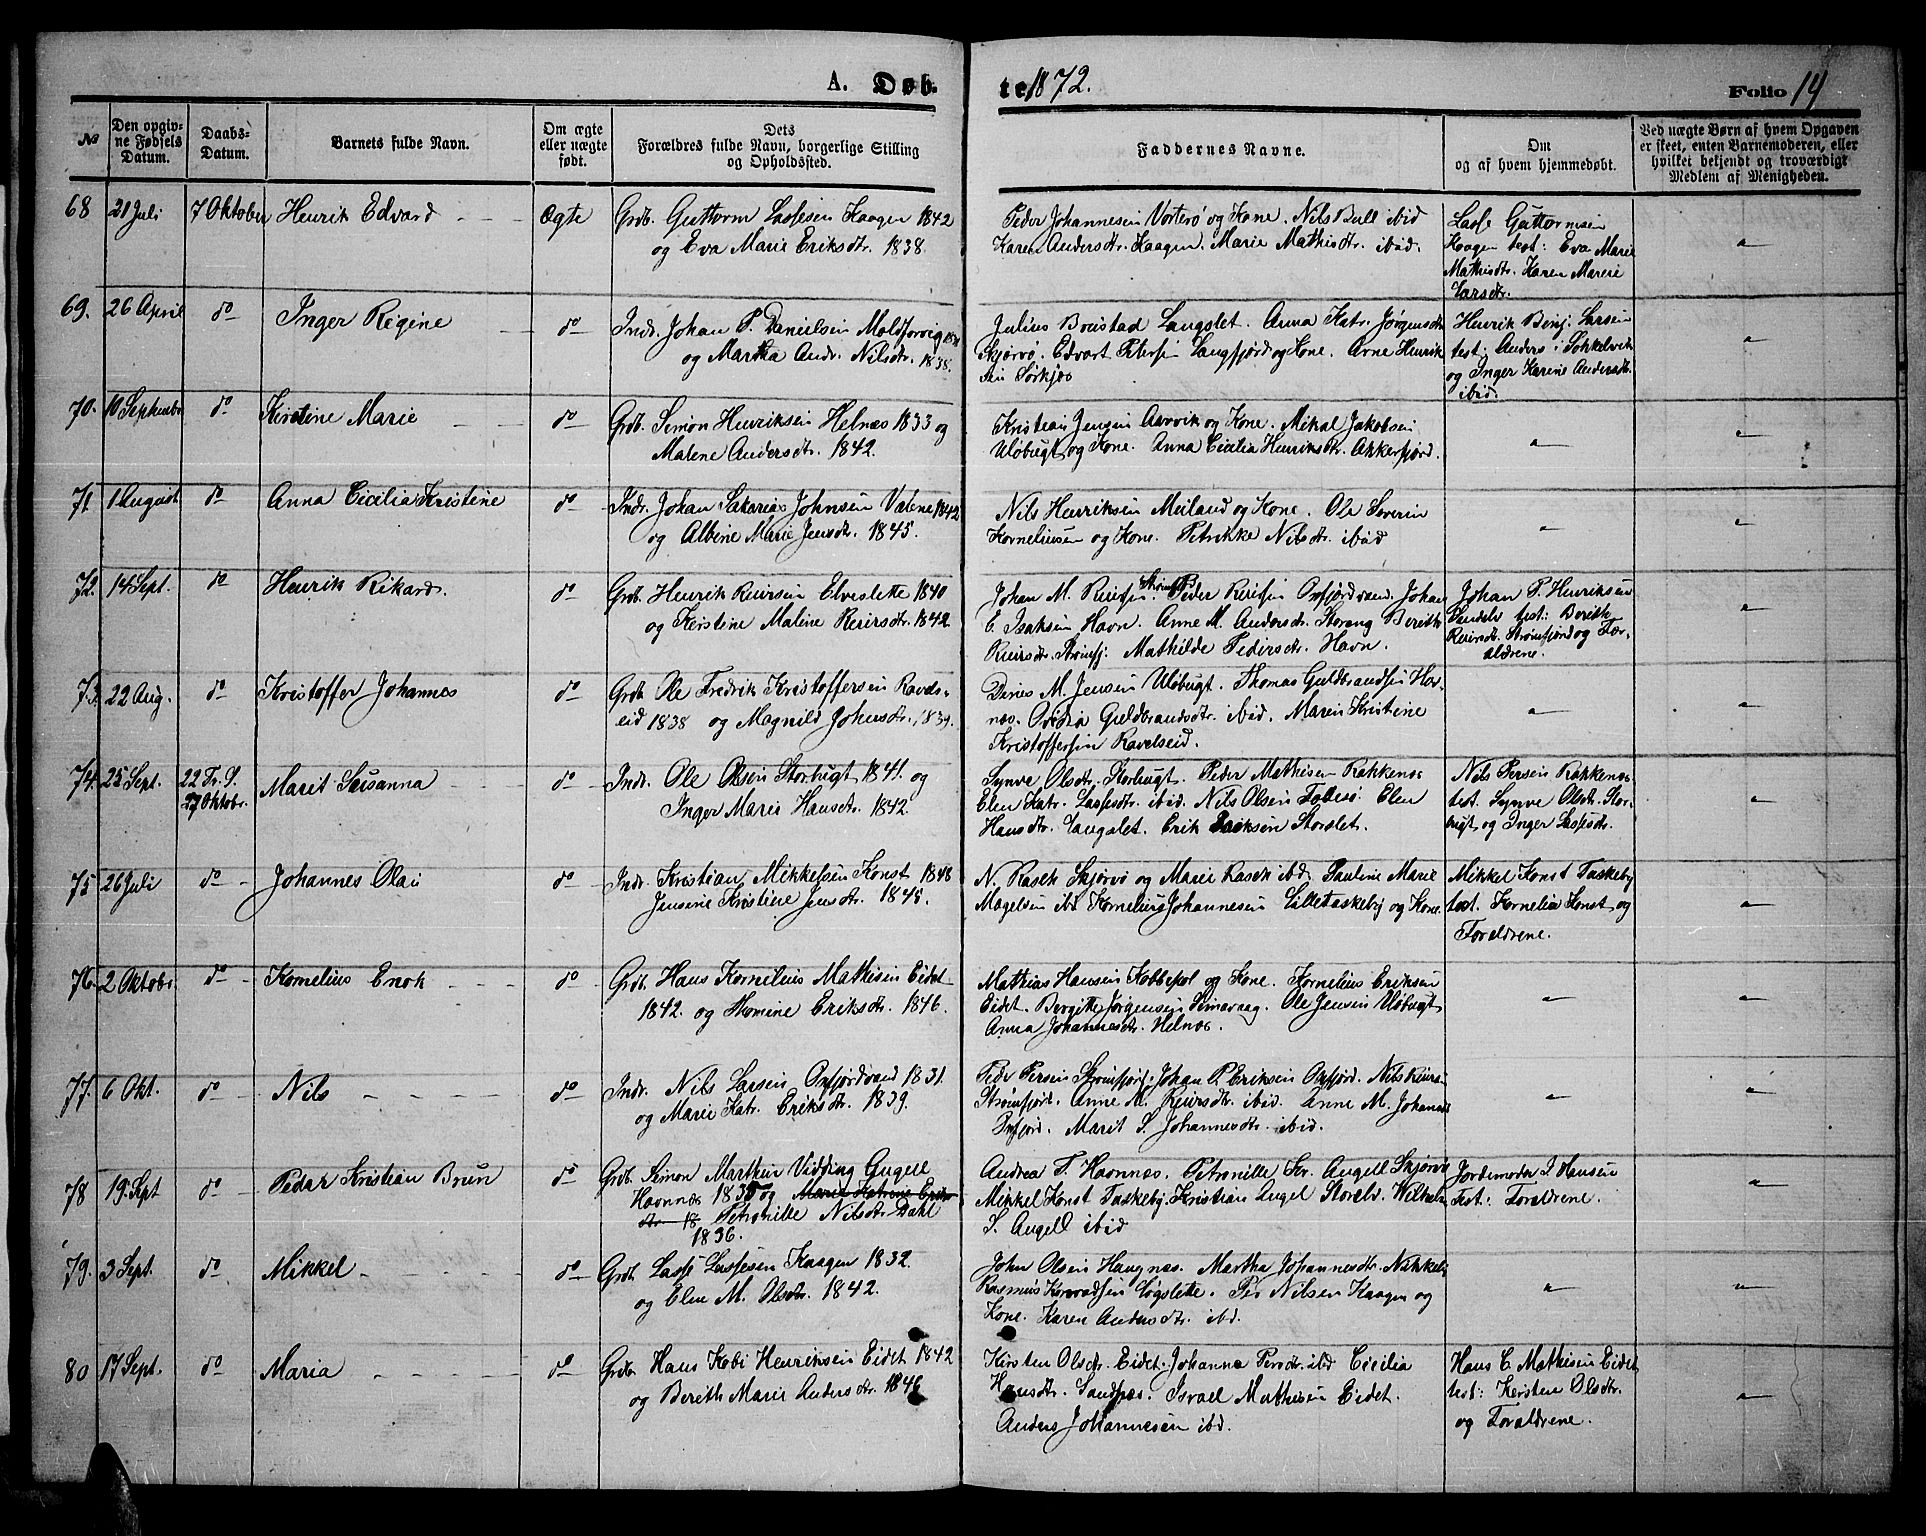 A. Døb-
te 1872.
Folio 14
No
Den opgiv-
ne Fødsels
Datum.
Daabs-
Datum.
Barnets fulde Navn.
Om ægte
eller uægte
født.
Dets
Forældres fulde Navn, borgerlige Stilling
og Opholdssted.
Faddernes Navne.
Om
og af hvem hjemmedøbt.
Ved uægte Børn af hvem Opgaven
er skeet, enten Barnemoderen, eller
hvilket bekjendt og troværdigt
Medlem af Menigheden.
68 21 Juli 7 Oktober Henrik Edvard Ægte
Grdb. Guttorm Lassesen Kaagen 1842
og Eva Marie Eriksdtr. 1838.
Peder Johannesen Vorterø og Kone. Nils Bull ibid
Karen Andersdtr. Kaagen. Marie Mathisdtr. ibid.
Lasse Guttormsen
Kaagen test: Eva Marie
Mathisdtr. Karen Marie
Larsdtr.
69. 26 April do Inger Regine do
Indr. Johan P. Danielsen Maldforvig
og Martha Andr. Nilsdtr. 1838.
Julius Boustad Langslet. Anna Katr. Jørgensdtr
Skjørvø. Edvart Petersen Langfjord og Kone. Arne Henrik
sen Sørkjos
Henrik Benj. Larsen
test: Anders i Sokkelvik
og Inger Karine Andersdtr.
ibid.
70. 10 September do Kirstine Marie do
Grdb. Simon Henriksen Helnæs 1833 og
Malene Andersdtr. 1842.
Kristian Jensen Aarvik og Kone. Mikal Jakobsen
Uløbugt og Kone. Anna Cicilia Henriksdtr. Akkerfjord.
71 1 August do Anna Cicilia Kristine do
Indr. Johan Sakarias Johnsen Valene 1842
og Albine Marie Jensdtr. 1845.
Nils Henriksen Meiland og Kone. Ole Severin
Korneliussen og Kone. Petrikke Nilsdtr. ibid
72. 14 Sept. do Henrik Rikard. do
Grdb. Henrik Reiersen Elvesletten 1840
og Kerstine Maline Reiersdtr. 1842.
Johan M. Reiersen Strømfjord Peder Reiersen Oxfjordvand. Johan
E. Isaksen Havn. Anne M. Andersdtr. Storeng Berith
Reiersdtr. Strømfj. Mathilde Pedersdtr. Havn.
Johan P. Henriksen
test: Berith
Reiersdtr. Strømfjord og For-
ældrene.
73. 22 Aug. do Kristoffer Johannes do
Grdb. Ole Fredrik Kristoffersen Ravels-
eid 1838 og Magnild Johnsdtr. 1839.
Dines M. Jensen Uløbugt. Thomas Guldbrandsen Hav-
næs. Ovidia Guldbrandsdtr. ibid. Maren Kristine
Kristoffersen Ravelseid.
74. 25 Sept. 22 Tr. S.
27 Oktobr. Marit Susanna do
Indr. Ole Olsen Storbugt 1841. og
Inger Marie Hansdtr. 1842.
Synve Olsdtr. Storbugt. Peder Mathisen Rakkenæs
Elen Katr. Lassesdtr. ibid. Nils Olsen Follesø. Elen
Hansdtr. Langslet. Erik Isaksen Storslet.
Nils Persen Rakkenæs
test. Synve Olsdtr. Stor-
bugt, og Inger Lassesdtr.
75 26 Juli do Johannes Olai do
Indr. Kristian Mikkelsen Konst 1848
Jensine Kristine Jensdtr. 1845.
N. Rasch Skjørvø og Marie Rasch ibid. Pauline Marie
Magelsen ibd Kornelius Johannesen Lilletaskeby og Kone.
Mikkel Konst Taskeby
test. Kornelia Konst og
Forældrene.
76. 2 Oktobr. do Kornelius Enok do
Grdb. Hans Kornelius Mathisen Eidet
1842. og Homine Eriksdtr. 1846.
Mathias Hansen Kobbepol og Kone. Kornelius Eriksen
Eidet. Bergitte Jørgensen Simavaag. Ole Jensen Uløbugt
Anna Johannesdtr. Helnæs.
77. 6 Okt. do Nils do
Indr. Nils Larsen Oxfjordvand 1831.
og Marie Katr. Eriksdtr. 1839.
Peder Persen Strømfjord. Johan P. Eriksen Oxfjord. Nils Reiersen
Strømfjord. Anne M. Reiersdtr. ibid. Anne M. Johansdtr
Oxfjord. Marit S. Johannesdtr. ibid.
78 19. Sept do Peder Kristian Brun do
Grdb. Simon Marthin Vidding Angell
Havnnæs 1835 og Marie Katrine Eriks
dtr. 18 Petronille Nilsdtr Dahl
1836.
Andrea T. Havnnæs. Petronille Angell Skjørvø
Mikkel Konst Taskeby. Kristian Angel Storelv. Wilhelm
S. Angell ibid
Jordemoder J. Hansen
Test: Forældrene.
79. 3 Sept. do Mikkel do
Grdb. Lasse Lassesen Kaagen 1832.
og Elen M. Olsdtr. 1842.
John Olsen Haugnæs. Martha Johannesdtr. Nikkeby
Rasmus Konradsen Løgslette. Per Nilsen Kaagen og
Kone. Karen Andersdtr. ibd.
80 17 Sept. do Maria do
Grdb. Hans Kobi Henriksen Eidet 1842
og Bereth Marie Andersdtr. 1846
Kirsten Olsdtr. Eidet. Johanna Persdtr. ibd Cicilia
Hansdtr. Sandnæs. Israel Mathisen Eidet.
Anders Johannesen ibd.
Hans C. Mathisen Eidet
test: Kersten Olsdtr.
og Forældrene.